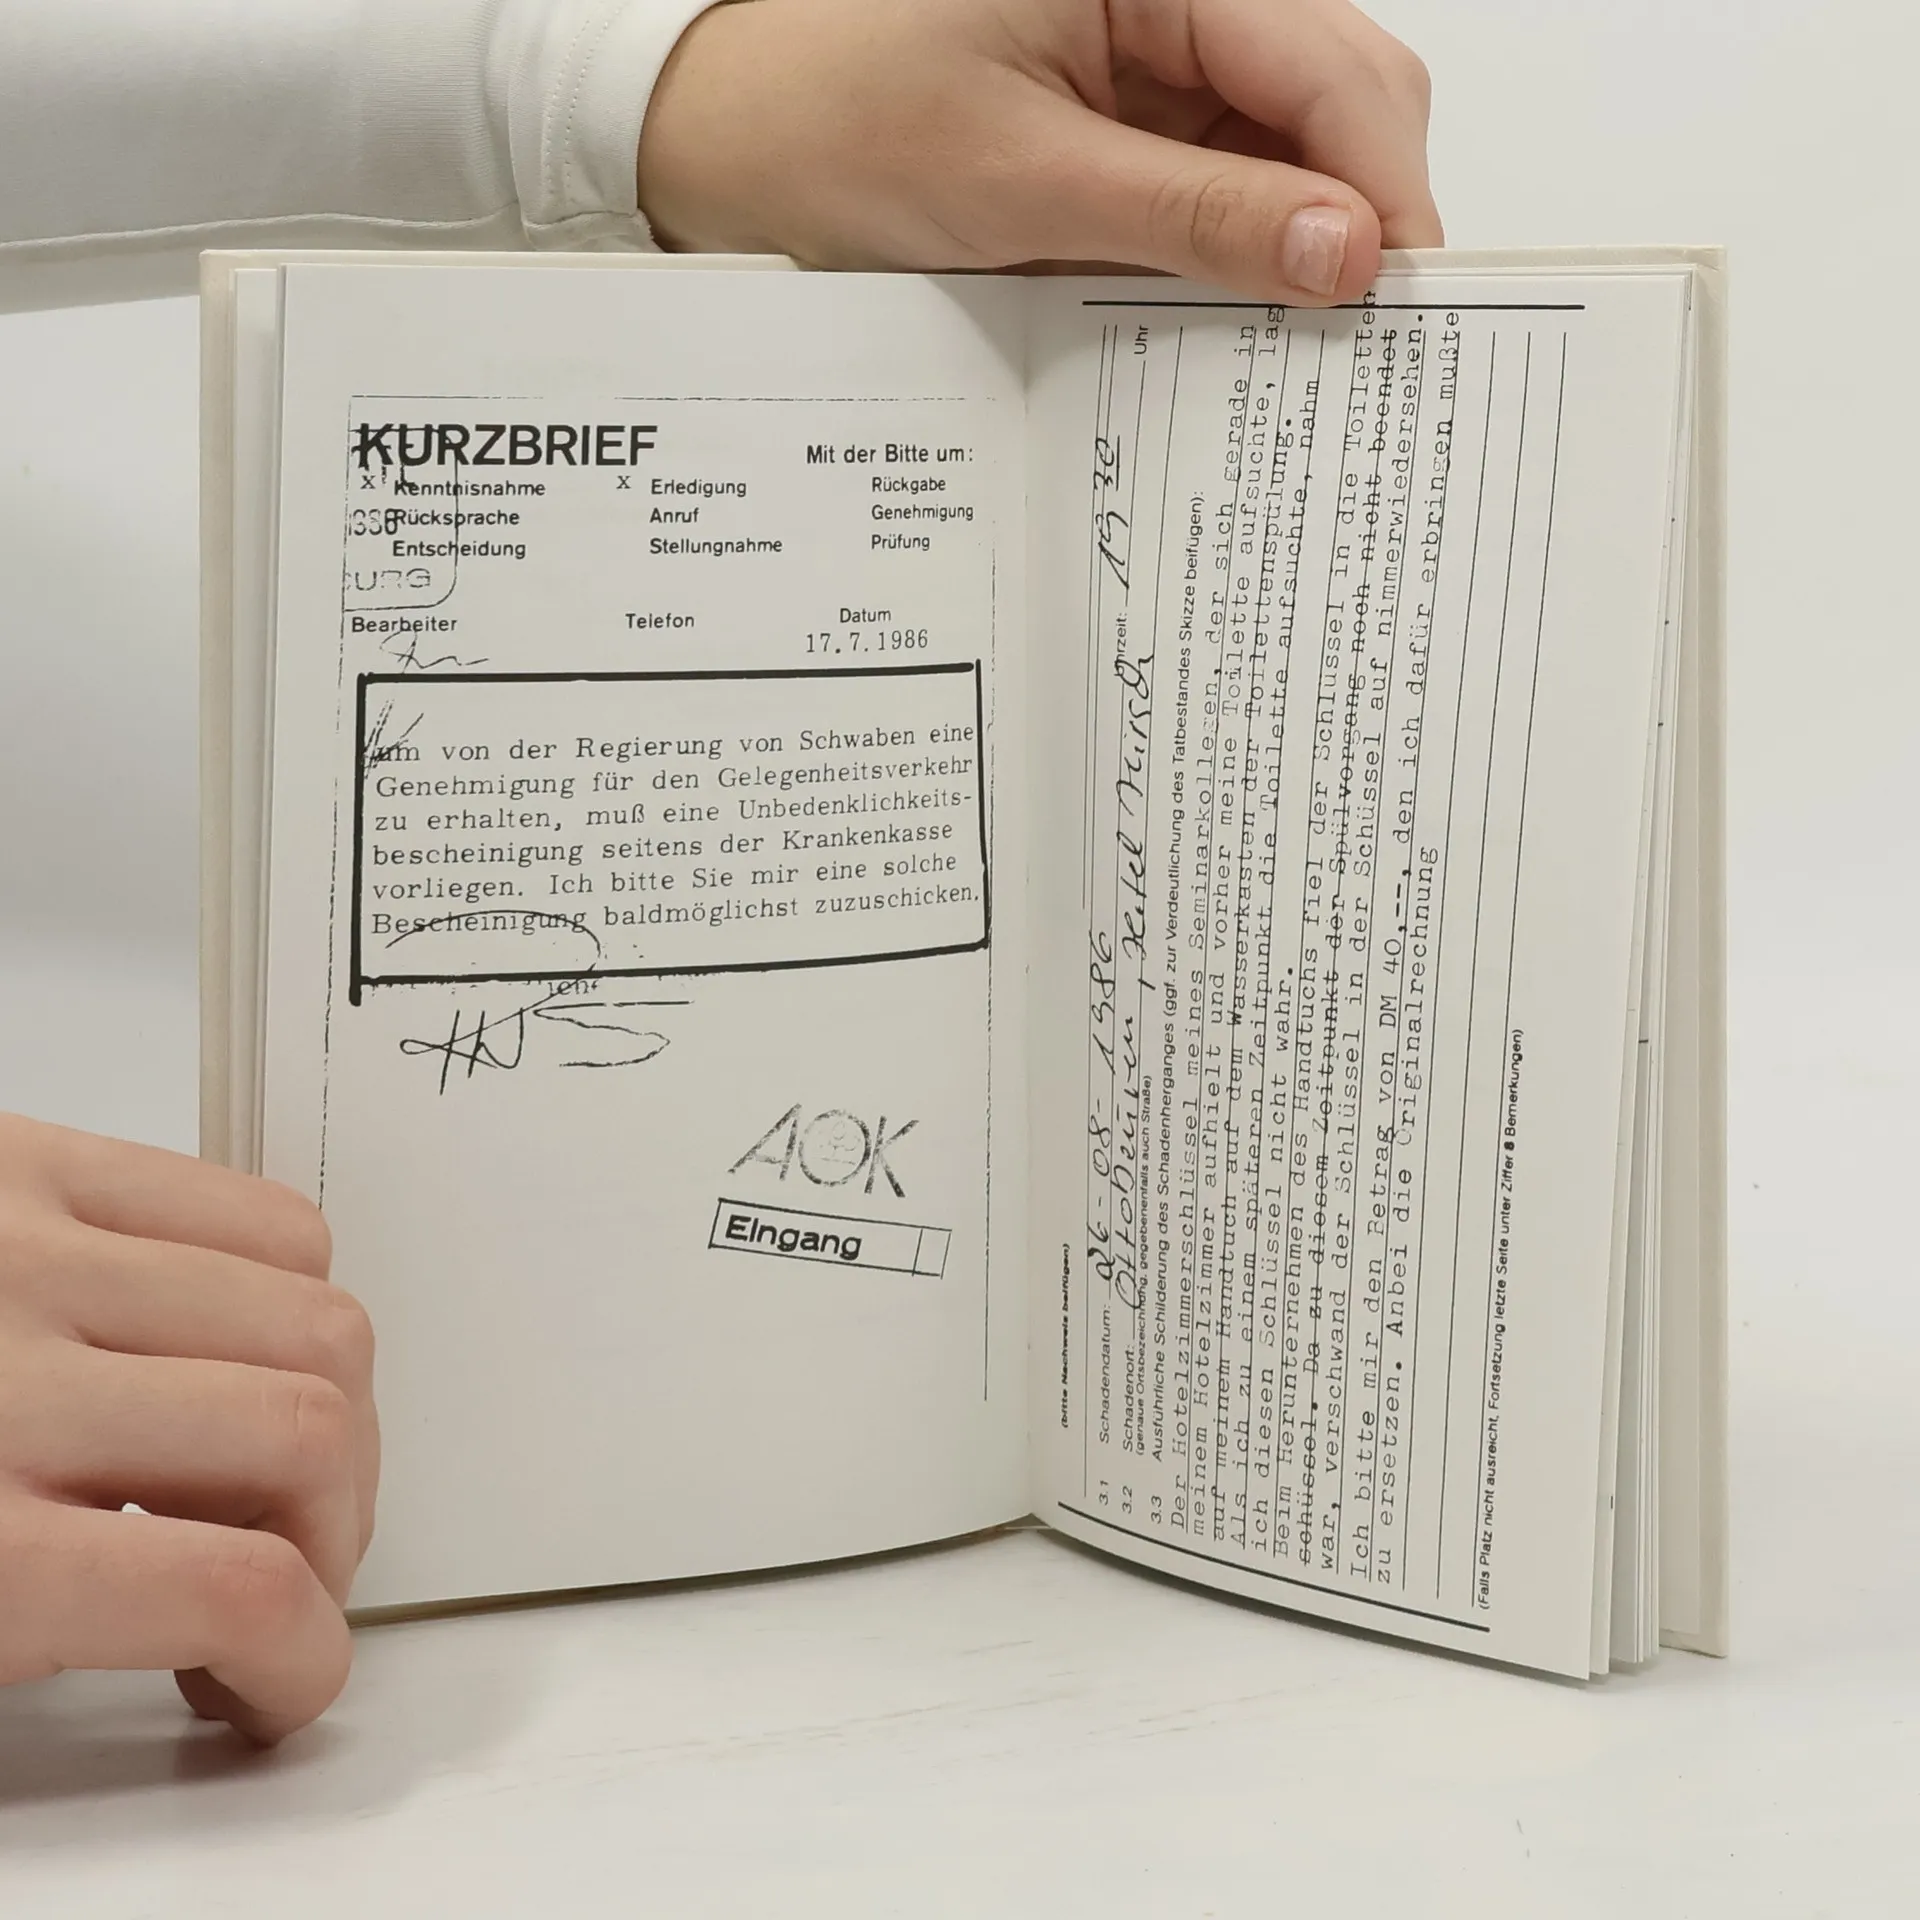 KURZBRIEF
Mit der Bitte um:
x Kenntnisnahme x Erledigung Rückgabe
Rücksprache Anruf Genehmigung
Entscheidung Stellungnahme Prüfung
1986
URG
Bearbeiter Telefon Datum
17.7.1986
um von der Regierung von Schwaben eine
Genehmigung für den Gelegenheitsverkehr
zu erhalten, muß eine Unbedenklichkeits-
bescheinigung seitens der Krankenkasse
vorliegen. Ich bitte Sie mir eine solche
Bescheinigung baldmöglichst zuzuschicken.
AOK
Eingang
(bitte Nachweis beifügen)
3.1 Schadendatum: 26-08-1986 Uhrzeit: 19 30 Uhr
3.2 Schadenort: Ottobeuren, Hotel Hirsch
(genaue Ortsbezeichnung, gegebenenfalls auch Straße)
3.3 Ausführliche Schilderung des Schadenherganges (ggf. zur Verdeutlichung des Tatbestandes Skizze beifügen):
Der Hotelzimmerschlüssel meines Seminarkollegen, der sich gerade in
meinem Hotelzimmer aufhielt und vorher meine Toilette aufsuchte, lag
auf meinem Handtuch auf dem Wasserkasten der Toilettenspülung.
Als ich zu einem späteren Zeitpunkt die Toilette aufsuchte, nahm
ich diesen Schlüssel nicht wahr.
Beim Herunternehmen des Handtuchs fiel der Schlüssel in die Toiletten
schüssel. Da zu diesem Zeitpunkt der Spülvorgang noch nicht beendet
war, verschwand der Schlüssel in der Schüssel auf nimmerwiedersehen.
Ich bitte mir den Betrag von DM 40,--, den ich dafür erbringen mußte
zu ersetzen. Anbei die Originalrechnung
(Falls Platz nicht ausreicht, Fortsetzung letzte Seite unter Ziffer 8 Bemerkungen)